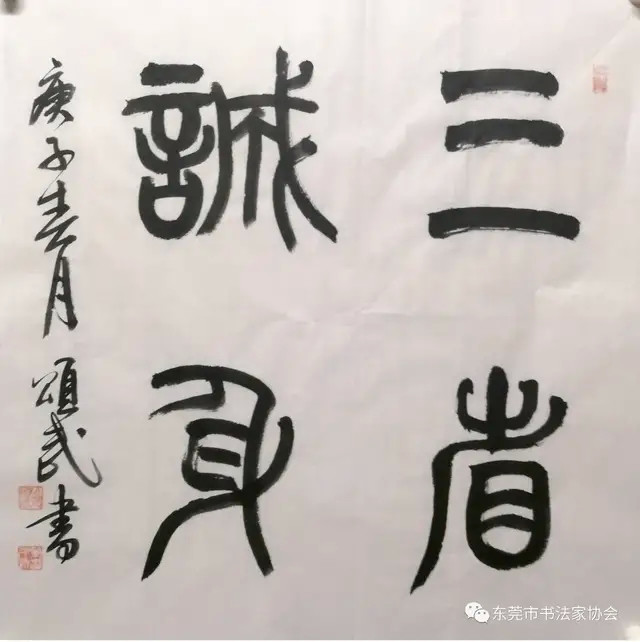 三省
誠身
庚子春月頌書
东莞市书法家协会